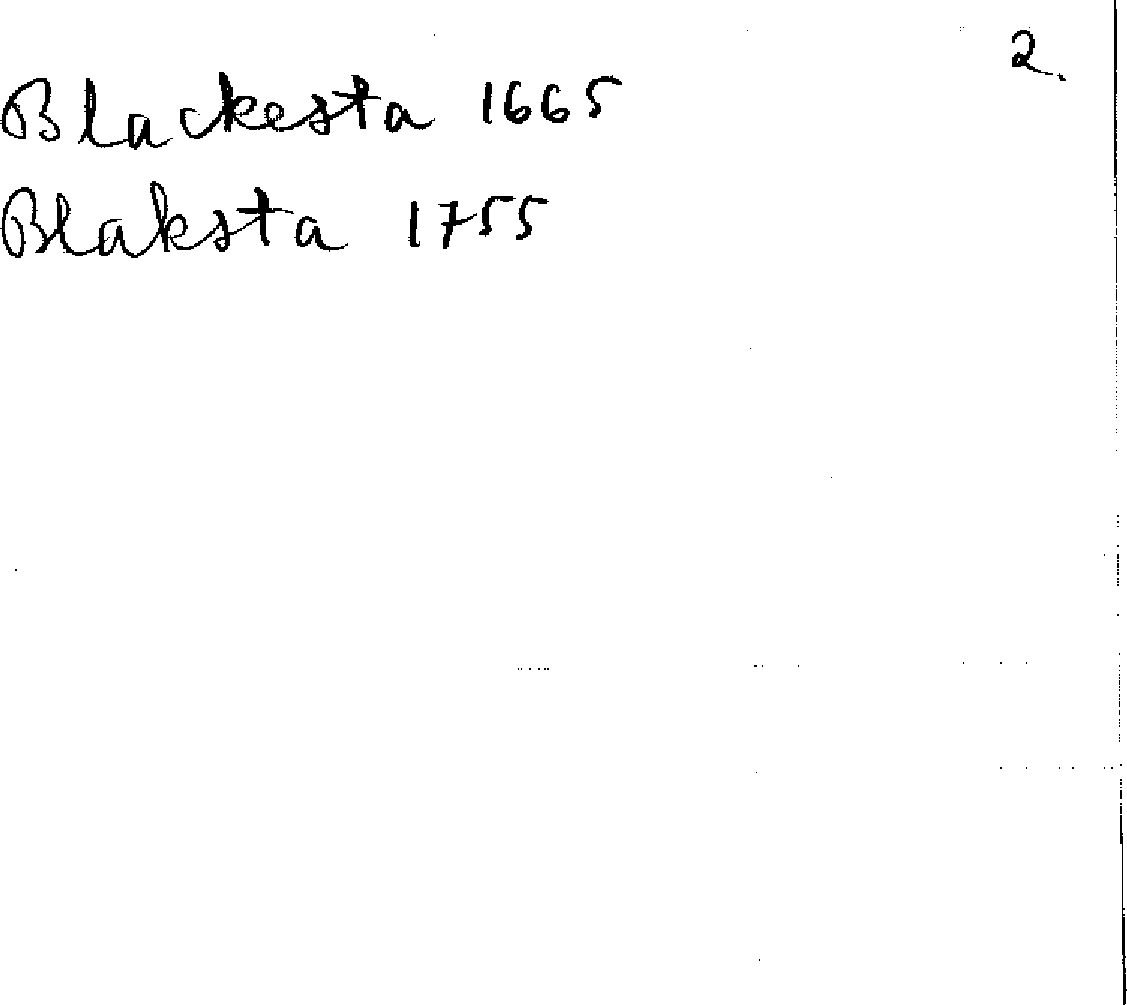 2.
Blackesta 1665
Blaksta 1755